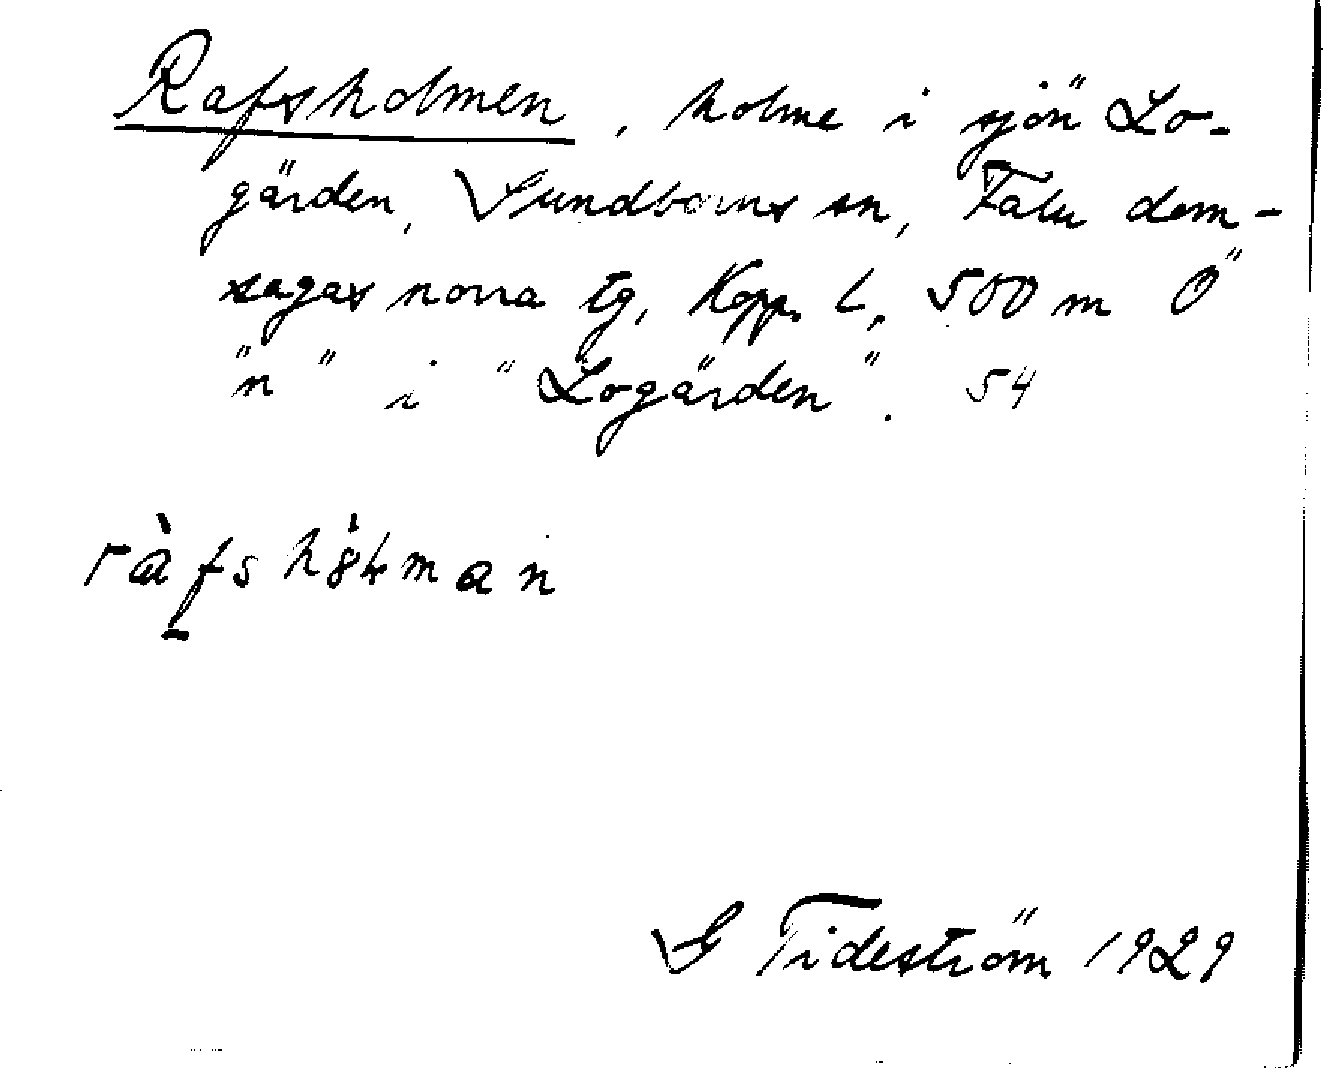 Rafsholmen, holme i sjön Lo-
gärden, Sundborns sn, Falu dom-
sagas norra tg, Kopp. l, 500 m Ö
"n" i "Logärden". 54
ràfshålman
G Tideström 1929